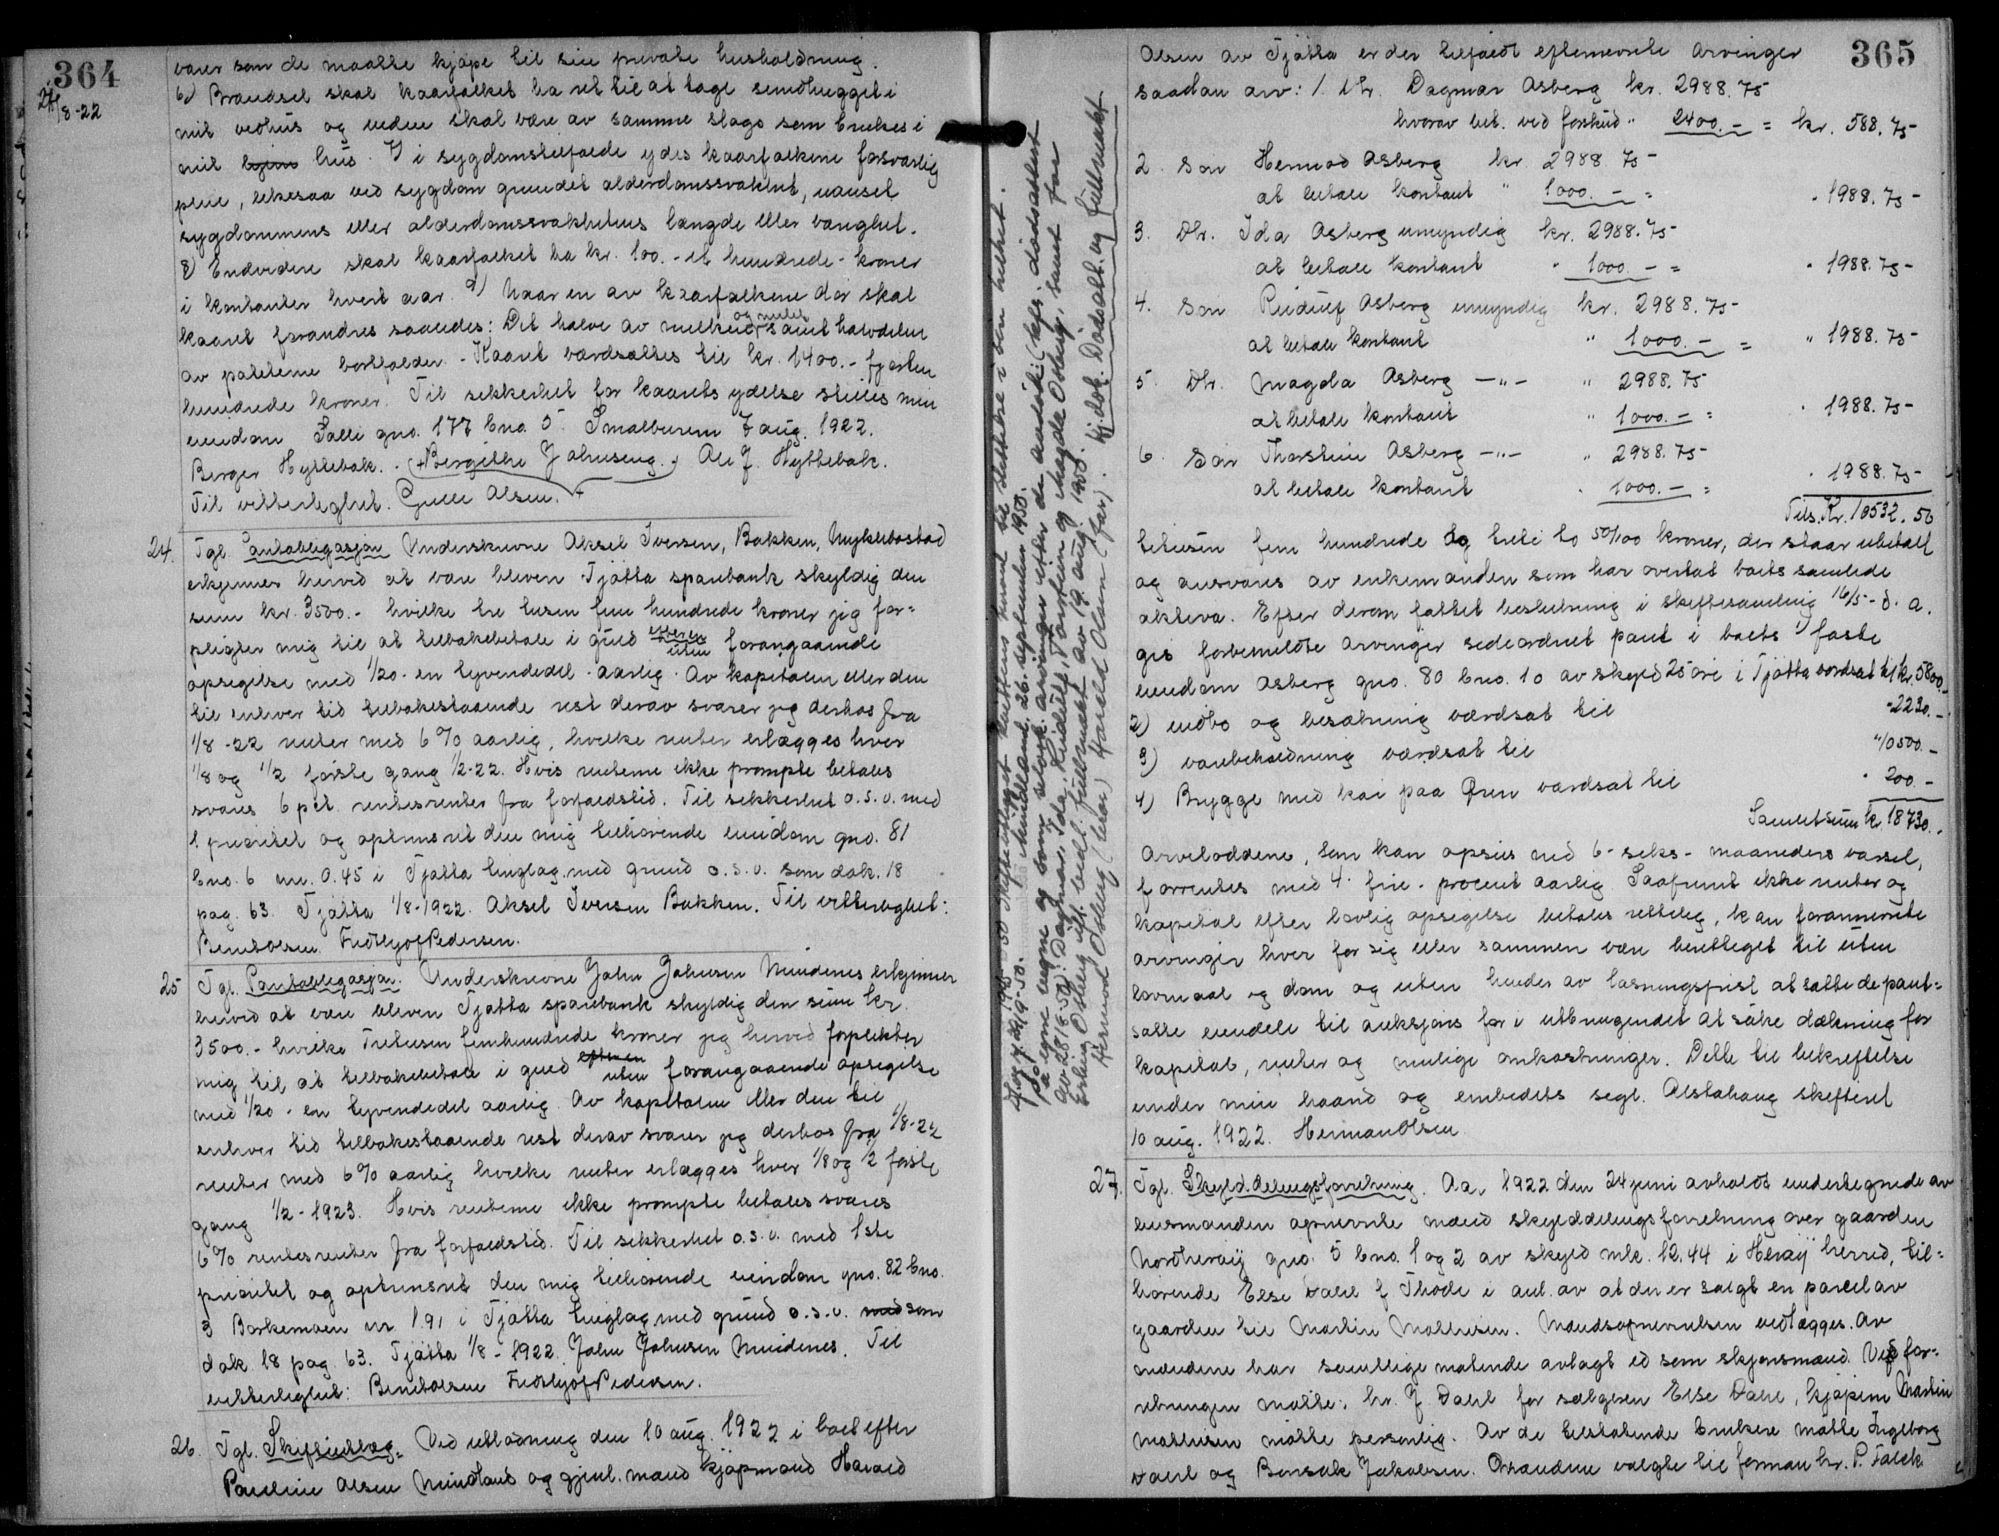 364
24/8-22
varer som de maatte kjøpe til sin private husholdning.
6) Brændsel skal kaarfolket ha ret til at tage smaahugget i
mit vedhus og veden skal være av samme slags som brukes i
mit hjem hus. 7 i sygdomstilfælde ydes kaarfolkene forsvarlig
pleie, likesaa ved sygdom grundet alderdomssvakhet, uanset
sygdommens eller alderdomssvakhetens længde eller vanskelighet.
8) Endvidere skal kaarfolket ha kr. 100.- et hundrede - kroner
i kontanter hvert aar. 9) Naar en av kaarfolkene dør skal
kaaret forandres saaledes: Det halve av melken og melet samt halvdelen
av poteterne bortfalder. - Kaaret værdsættes til kr. 1400.- fjorten
hundrede kroner. Til sikkerhet for kaarets ydelse stilles min
eiendom Salli gno. 177 bno. 5. Smalburen 7 aug. 1922.
Berger Hyttebak. (+Bergithe Johnseng.+) Ole J. Hyttebak.
Til vitterlighet. Gulle Olsen.
24. Tgl. Pantobligasjon Underskrevne Aksel Iversen, Bakken, Myklebostad
erkjenner herved at være bleven Tjøtta sparebank skyldig den
sum kr. 3500.- hvilke tre tusen fem hundrede kroner jeg for=
pligter mig til at tilbakebetale i guld efter en uten forangaaende
opsigelse med 1/20 - en tyvendedel - aarlig. Av kapitalen eller den
til enhver tid tilbakestaaende rest derav svarer jeg derhos fra
1/8-22 renter med 6% aarlig, hvilke renter erlægges hver
1/8 og 1/2 første gang 1/2-22. Hvis renterne ikke prompte betales
svares 6 pct. rentesrenter fra forfaldstid. Til sikkerhet o.s.v. med
1 prioritet og optrinsret den mig tilhørende eiendom gno. 81
bno. 6 m. 0.45 i Tjøtta tinglag med grund o.s.v. som dok. 18
pag. 63. Tjøtta 1/8-1922. Aksel Iversen Bakken. Til vitterlighet:
Bernt Olsen Fridthjof Pedersen.
25 Tgl. Pantobligasjon. Underskrevne John Johnsen Mindenes erkjenner
herved at være bleven Tjøtta sparebank skyldig den sum kr.
3500.- hvilke Tretusen femhundrede kroner jeg herved forplikter
mig til at tilbakebetale i guld efter en uten forangaaende opsigelse
med 1/20 - en tyvendedel aarlig. Av kapitalen eller den til
enhver tid tilbakestaaende rest derav svarer jeg derhos fra 1/8-22
renter med 6% aarlig hvilke renter erlægges hver 1/8 og 1/2 første
gang 1/2-1923. Hvis renterne ikke prompte betales svares
6% rentesrenter fra forfaldstid. Til sikkerhet o.s.v. med 1ste
prioritet og optrinsret den mig tilhørende eiendom gno. 82 bno.
3 Borkemoen m 1.91 i Tjøtta tinglag med grund o.s.v. med som
dok. 18 pag. 63. Tjøtta 1/8-1922. John Johnsen Mindenes. Til
vitterlighet: Bernt Olsen Fridthjof Pedersen.
26. Tgl. Skifteutlæg. Ved utlodning den 10 aug. 1922 i boet efter
Pauline Olsen Mindland og gjenl. mand kjøpmand Harald
Erling Osberg ifl. bevl. fullmakt av 19 aug. 1950. Hj.dok. Dødsatt. og fullmakt
Hermod Osberg (bror) Harald Olsen (far).
365
Olsen av Tjøtta er der tilfaldt efternevnte arvinger
saadan arv: 1. Dtr. Dagmar Osberg kr. 2988.75
hvorav bet. ved forskud " 2400.- = kr. 588.75
2. Søn Hermod Osberg kr. 2988.75
at betale kontant " 1000.- = " 1988.75
3. Dtr. Ida Osberg umyndig kr. 2988.75
at betale kontant " 1000.- = " 1988.75
4. Søn Reidulf Osberg umyndig kr. 2988.75
at betale kontant " 1000.- = " 1988.75
5. Dtr. Magda Osberg -"- " 2988.75
at betale kontant " 1000.- = " 1988.75
6. Søn Thorstein Osberg -"- " 2988.75
at betale kontant " 1000.- = " 1988.75
Tils. Kr. 10532.50
titusen fem hundrede og tretti to 50/100 kroner, der staar ubetalt
og ansvares av enkemanden som har overtat boets samlede
aktiva. Efter derom fattet beslutning i skiftesamling 16/5 d. a.
gis forbemeldte arvinger sideordnet pant i boets 1) faste
eiendom Osberg gno. 80 bno. 10 av skyld 25 øre i Tjøtta værdsat til kr. 5800.-
2) indbo og besætning værdsat til "2230.-
3) varebeholdning værdsat til "10500.-
4) Brygge med kai paa Øren værdsat til " 200.-
Samlet sum kr. 18730.-
Arveloddene, som kan opsies med 6 - seks - maaneders varsel,
forrentes med 4 - fire - procent aarlig. Saafremt ikke renter og
kapital efter lovlig opsigelse betales rettelig, kan forannevnte
arvinger hver for sig eller sammen være berettiget til uten
lovmaal og dom og uten hinder av løsningsfrist at sætte de pant=
satte eiendele til auksjon for i utbringendet at søke dækning for
kapital, renter og mulige omkostninger. Dette til bekreftelse
under min haand og embedets segl. Alstahaug skifteret
10 aug. 1922. Herman Olsen
27. Tgl. Skylddelingsforretning. Aa. 1922 den 24 juni avholdt undertegnede av
lensmanden opnevnte mænd skylddelingsforretning over gaarden
Nordherøy gno. 5 bno. 1 og 2 av skyld mk. 12.44 i Herøy herred, til=
hørende Else Dahl f Thode i anl. av at der er solgt en parcel av
gaarden til Martin Mathisen. Mandsopnevnelsen vedlægges. Av
mændene har samtlige møtende avlagt ed som skjønsmænd. Ved for=
retningen møtte: hr. J Dahl for sælgeren Else Dahl, kjøperen Martin
Mathisen møtte personlig. Av de tilstøtende brukere møtte Ingeborg
Dahl og Bensak Jakobsen. Mændene valgte til formand hr. P. Falck